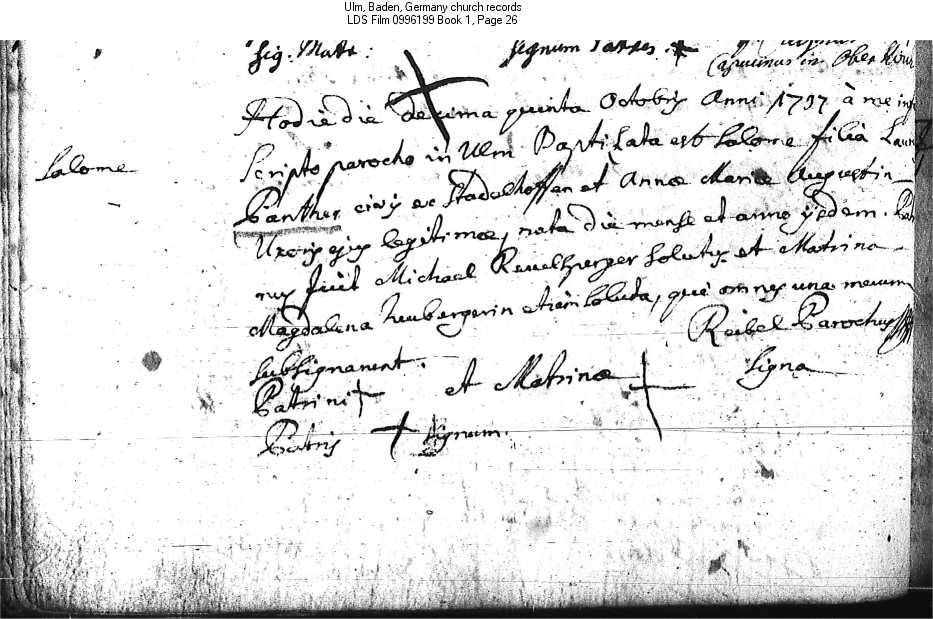 Ulm, Baden, Germany church records
LDS Film 0996199 Book 1, Page 26
Sig: Matr:
signum Patris
in Oberkirch
Hodie die decima quinta Octobris Anni 1737 à me in
Salome
Scripto parocho in Ulm Baptizata est Salome filia Laur
Panther civis ex Stadelhoffen et Annæ Mariæ Augustin
Uxoris ejus legitimæ, nata die mense et anno ijsdem. Pat
nus fuit Michael Revelsperger solutus et Matrina
Magdalena Huubergerin etiam soluta, qui omnes una mecum
subsignarunt.
Reibel Parochus
Patrini et Matrinæ Signa
Patris signum.